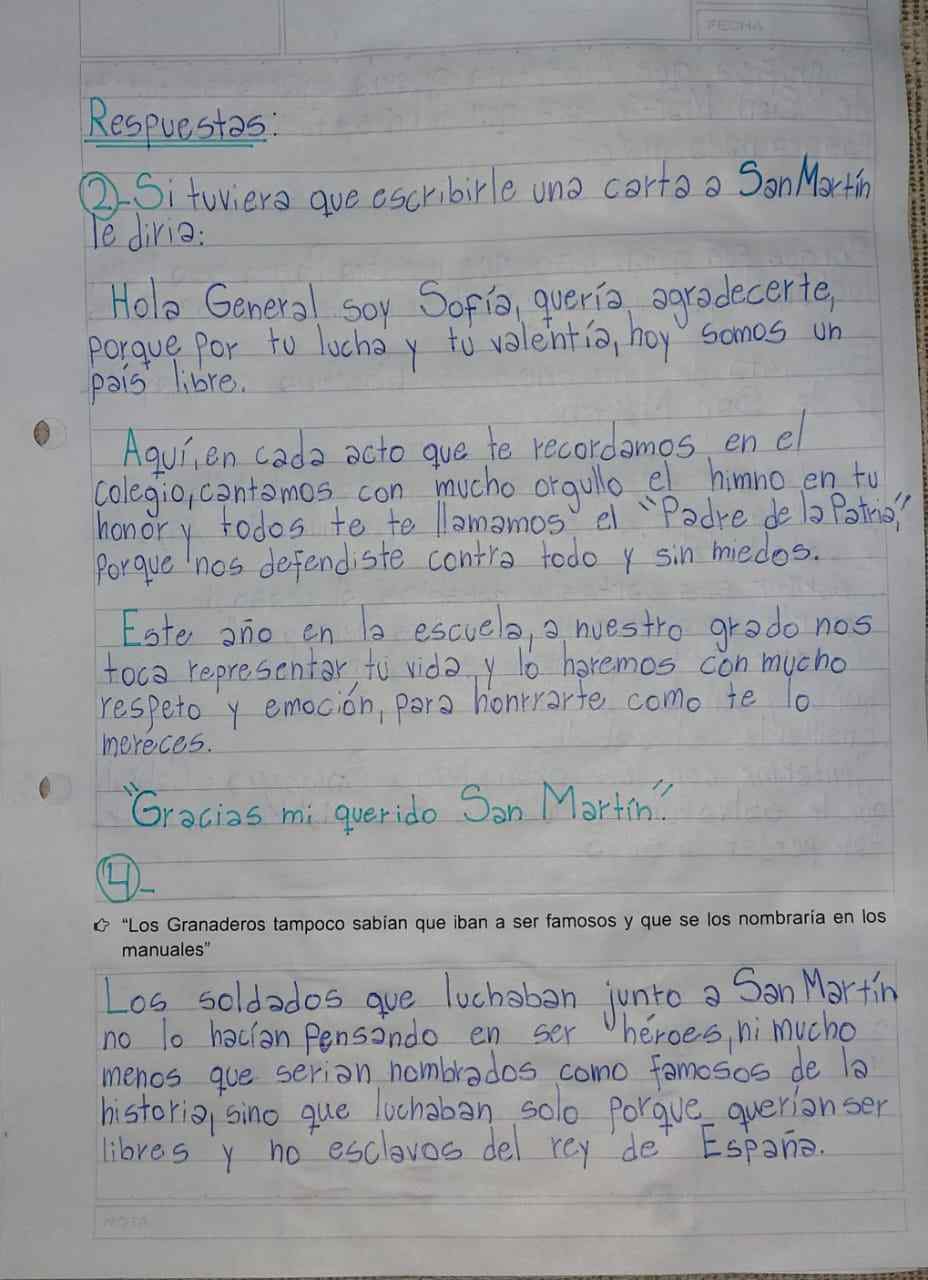 FECHA
Respuestas:
2-Si tuviera que escribirle una carta a San Martín
le diria:
Hola General soy Sofía, quería agradecerte,
porque por tu lucha y tu valentía, hoy somos un
país libre.
Aquí, en cada acto que te recordamos en el
colegio, cantamos con mucho orgullo el himno en tu
honor y todos te te llamamos el "Padre de la Patria,"
porque nos defendiste contra todo y sin miedos.
Este año en la escuela, a nuestro grado nos
toca representar tu vida y lo haremos con mucho
respeto y emoción, para honrrarte como te lo
mereces.
"Gracias mi querido San Martín".
4-
"Los Granaderos tampoco sabían que iban a ser famosos y que se los nombraría en los
manuales"
Los soldados que luchaban junto a San Martín
no lo hacían pensando en ser héroes, ni mucho
menos que serian nombrados como famosos de la
historia, sino que luchaban solo porque querían ser
libres y no esclavos del rey de España.
NOTA